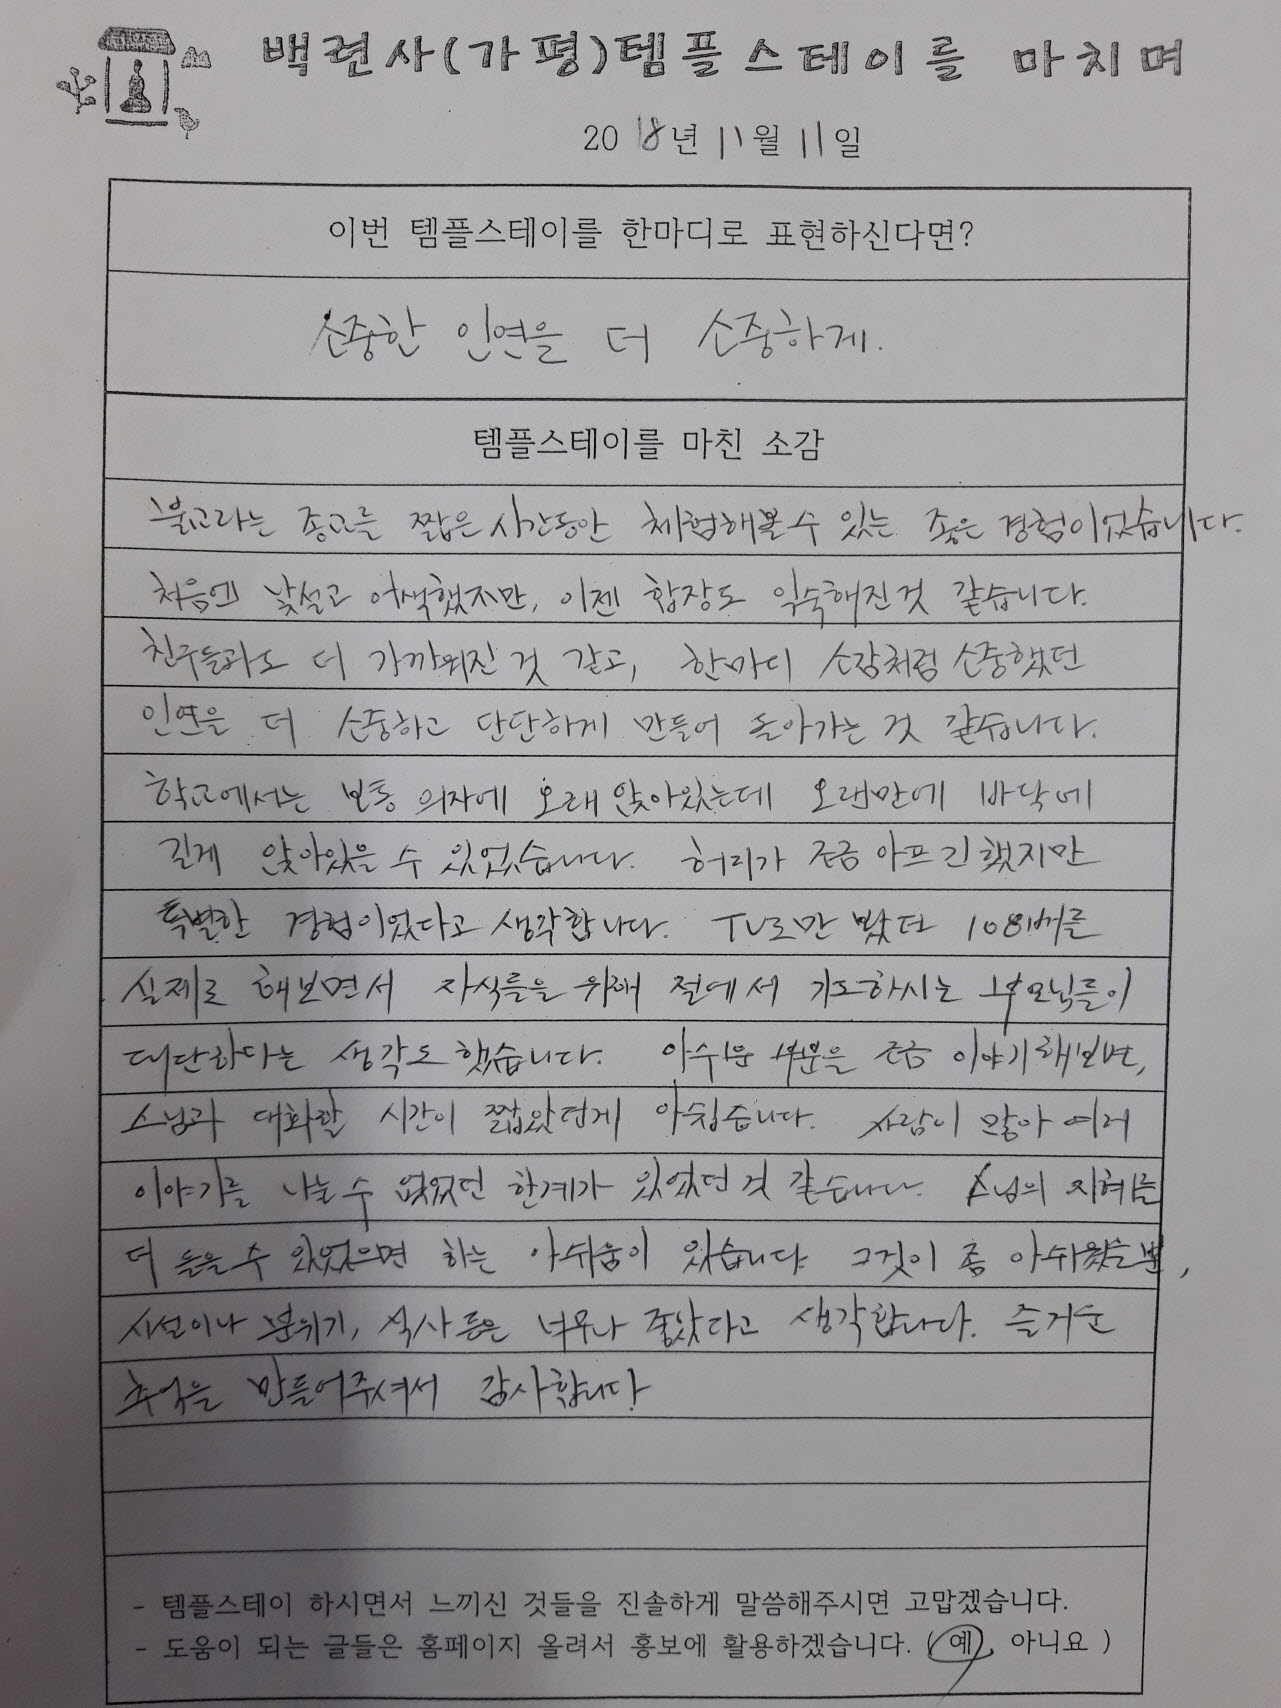 백련사(가평)템플스테이를 마치며
2018년 11월 11일
이번 템플스테이를 한마디로 표현하신다면?
소중한 인연을 더 소중하게.
템플스테이를 마친 소감
불교라는 종교를 짧은 시간동안 체험해볼 수 있는 좋은 경험이었습니다.
처음엔 낯설고 어색했지만, 이젠 합장도 익숙해진것 같습니다.
친구들과도 더 가까워진 것 같고, 한마디 소감처럼 소중했던
인연을 더 소중하고 단단하게 만들어 돌아가는 것 같습니다.
학교에서는 보통 의자에 오래 앉아있는데 오랜만에 바닥에
길게 앉아있을 수 있었습니다. 허리가 조금 아프긴했지만
특별한 경험이었다고 생각합니다. TV로만 봤던 108배를
실제로 해보면서 자식들을 위해 절에서 기도하시는 부모님들이
대단하다는 생각도 했습니다. 아쉬운 부분을 조금 이야기해보면,
스님과 대화할 시간이 짧았던게 아쉽습니다. 사람이 많아 여러
이야기를 나눌 수 없었던 한계가 있었던 것 같습니다. 스님의 지혜를
더 들을 수 있었으면 하는 아쉬움이 있습니다. 그것이 좀 아쉬웠을 뿐,
시설이나 분위기, 식사 등은 너무나 좋았다고 생각합니다. 즐거운
추억을 만들어주셔서 감사합니다
- 템플스테이 하시면서 느끼신 것들을 진솔하게 말씀해주시면 고맙겠습니다.
- 도움이 되는 글들은 홈페이지 올려서 홍보에 활용하겠습니다. (예, 아니요 )